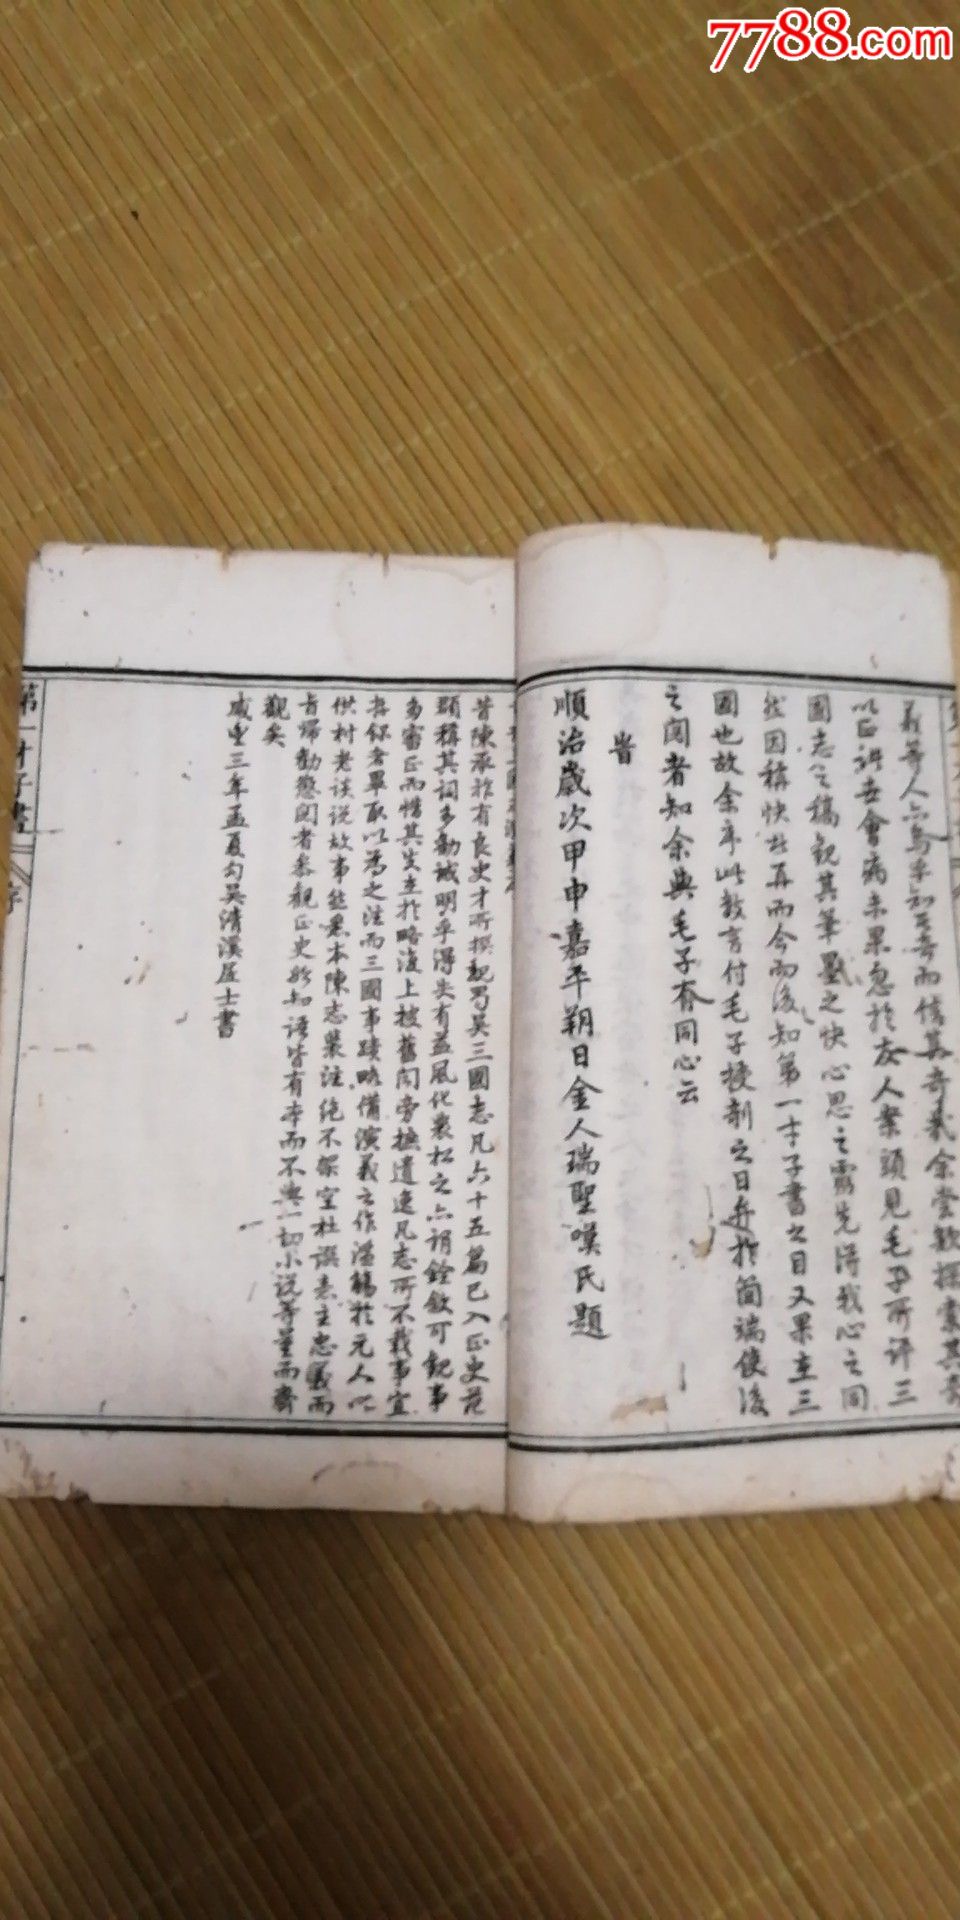 7788.com
義等人亦烏乎知其奇而信其奇哉余嘗欲探索其奇
以正諸世會病未果忽於友人案頭見毛子所評三
國志之稿觀其筆墨之快心思之靈先得我心之同
然因稱快者再而今而後知第一才子書之目又果在三
國也故余序此数言付毛子授剞之日弁於簡端使後
之閱者知余與毛子有同心云
旹
順治歲次甲申嘉平朔日金人瑞聖嘆氏題
昔陳承祚有良史才所撰魏蜀吳三國志凡六十五篇已入正史范
頵稱其詞多勸誡明乎得失有益風化裴松之亦謂銓敘可觀事
多審正而惜其失在於略復上搜舊聞旁摭遺逸凡志所不載事宜
存錄者畢取以爲之注而三國事蹟略備演義之作濫觴於元人以
供村老談說故事然悉本陳志裴注絕不架空杜撰意主忠義而
旨歸勸懲閱者參觀正史始知語皆有本而不與一切小說等量而齊
觀矣
咸豐三年孟夏勾吳清溪居士書
第一才子書
序